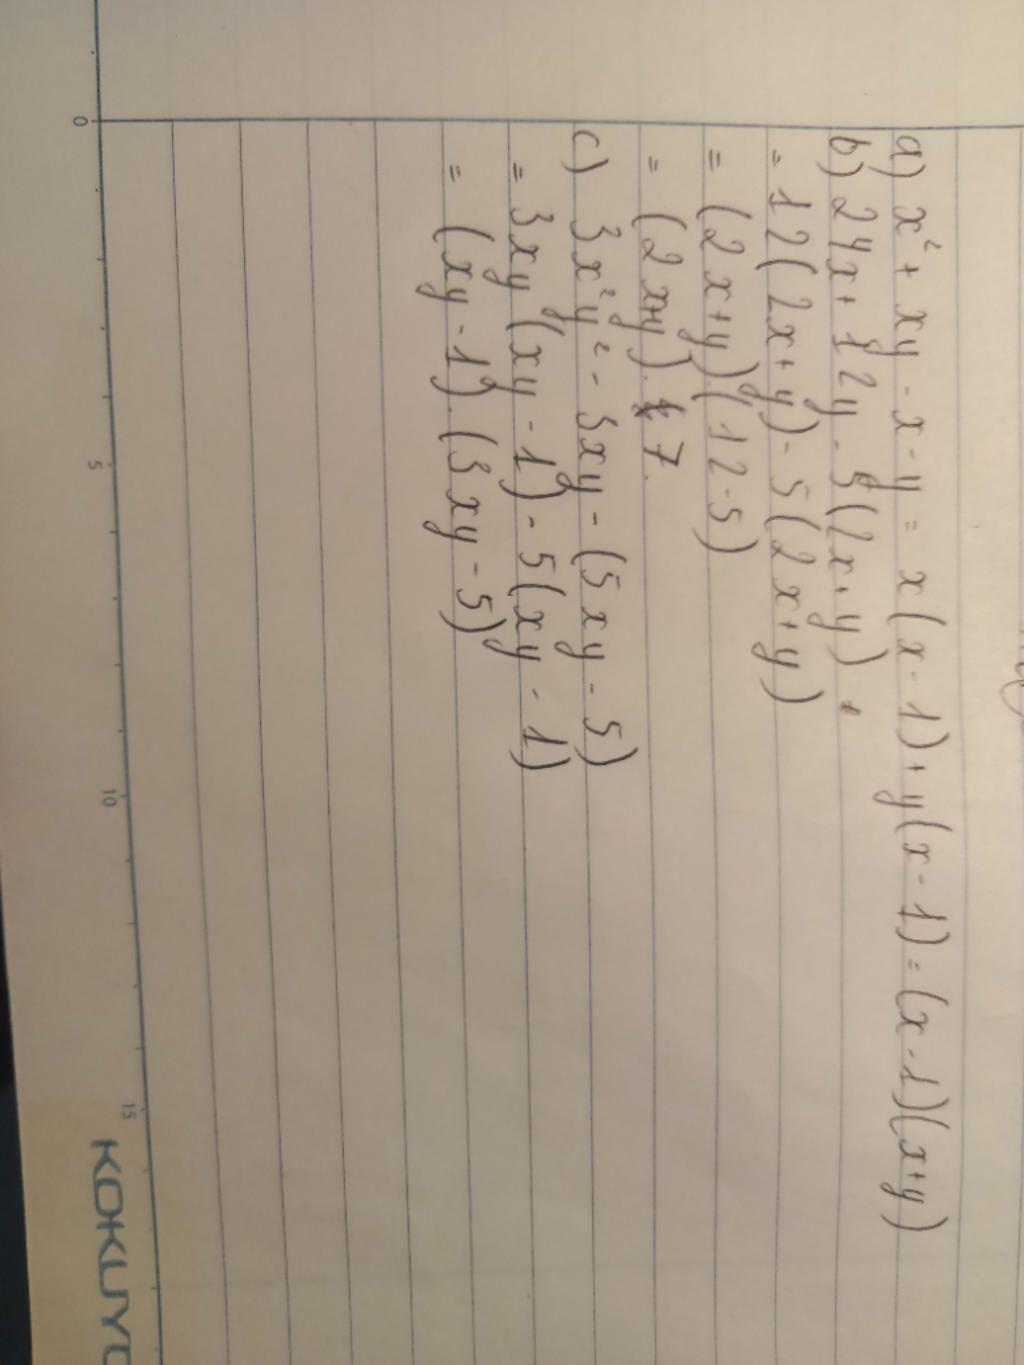 a) x² + xy - x - y = x(x - 1) + y(x - 1) = (x - 1)(x+y)
b) 24x + 12y - 5(2x+y)
= 12(2x+y) - 5(2x+y)
= (2x+y)(12-5)
= (2x+y).7
c) 3x²y² - 3xy - (5xy - 5)
= 3xy(xy - 1) - 5(xy - 1)
= (xy - 1).(3xy - 5)
0 5 10 15
KOKUYO